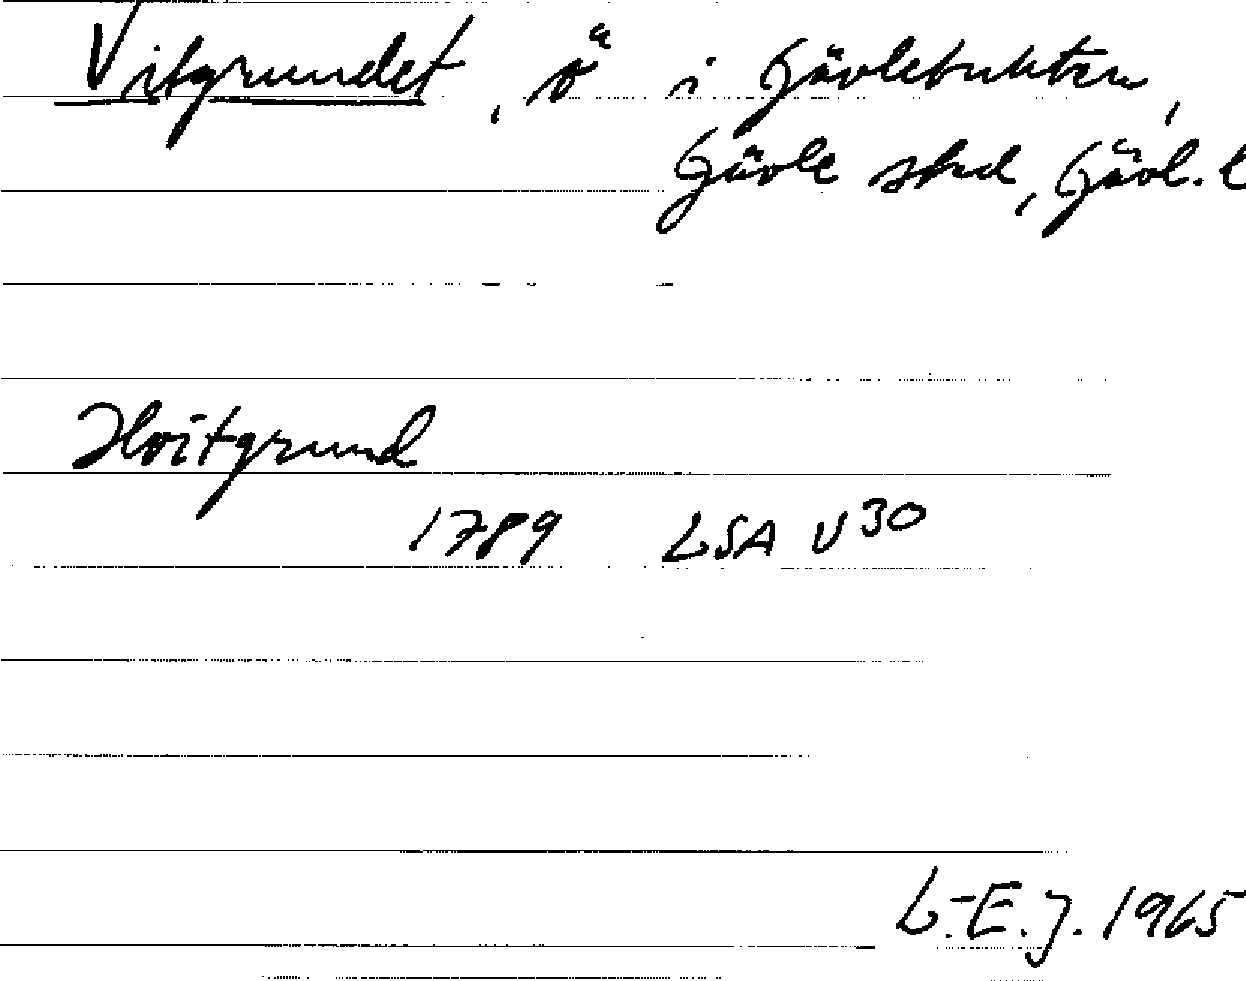 Vitgrundet, ö i Gävlebukten,
Gävle stad, Gävl. l
Hvitgrund
1789 LSA V30
L-E.J. 1965